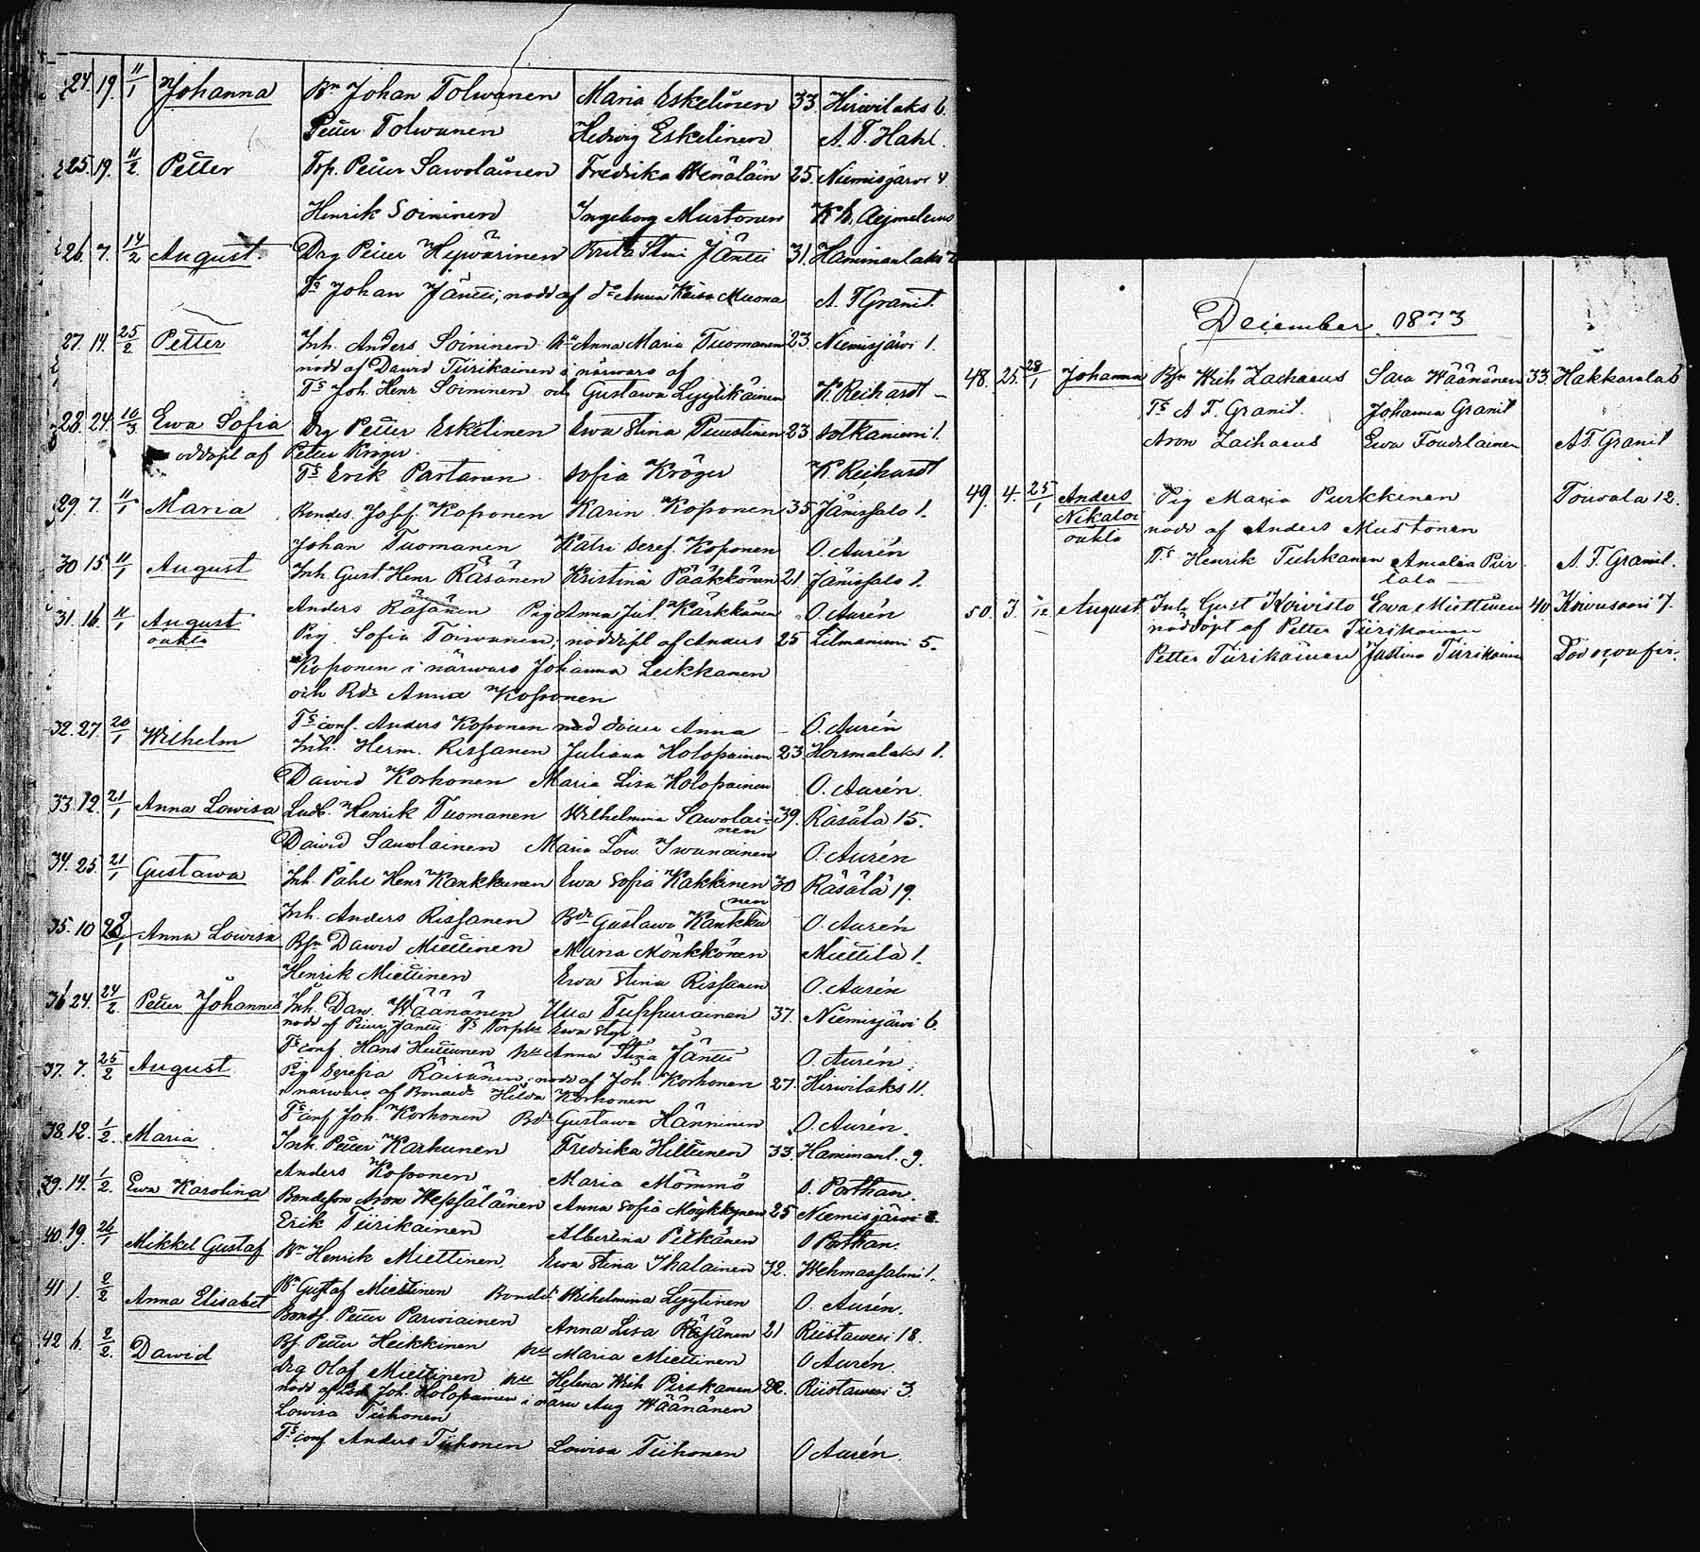 24. 19. 11/1 Johanna Bn Johan Tolwanen Maria Eskelinen 33. Hirwilaks 6.
Petter Tolwanen Hedwig Eskelinen A. F. Hahl.
25. 19. 11/2. Petter Trp. Petter Sawolainen Fredrika Wenäläin 25. Niemisjärwi 4
Henrik Soininen Ingeborg Murtonen K H. Aejmelaeus
26. 7. 14/2 August. Drg Petter Hywärinen Brita Stina Jäntti 31. Haminanlaks
Ts Johan Jäntti, nodd af do Anna Kaisa Muona A. F Granit.
27. 14. 25/2 Petter Inh. Anders Soininen Anna Maria Tuomanen 23. Niemisjärwi 1.
nodd af Dawid Tiirikainen i närwaro af
Ts Joh. Henr Soininen och Gustawa Lyytikäinen K. Reihardt
28. 24. 10/3 Ewa Sofia Drg Petter Eskelinen Ewa Stina Puustinen 23 Sotkaniemi 1.
oddöpt af Petter Kröger
Ts Erik Partanen Sofia Kröger K Reihardt
29. 7. 11/1 Maria Bondes. Josef. Koponen Karin Koponen 35 Jänissalo 1.
Johan Tuomanen Katri Seref. Koponen O. Aurén
30 15 11/1 August Inh Gust. Henr Räsänen Kristina Pääkkönen 21 Jänissalo 1.
Anders Räsänen Pig Anna Jul. Kärkkänen O. Aurén
31. 16. 11/1 August Pig. Sofia Toiwanen; nöddöpt af Anders 25 Litmaniemi 5.
oäkta
Koponen i närwaro Johanna Leikkanen
och Bdr Anna Koponen
Ts conf. Anders Koponen med Anna O. Aurén
32. 27. 20/1 Wilhelm Inh. Herm. Rissanen Juliana Holopainen 23 Hosmalaks 1.
Dawid Korhonen Maria Lisa Holopainen O. Aurén.
33. 12. 21/1 Anna Lowisa Henrik Tuomanen Wilhelmina Sawolai-
nen 39. Räsälä 15.
Dawid Sawolainen Maria Low. Iwanainen O. Aurén
34. 25. 21/1 Gustawa Inh. Påhl Henr Kankkunen Ewa Sofia Kakkinen 30 Räsälä 19.
Inh. Anders Rissanen Bdr Gustawa Kankku
nen O. Aurén
35. 10 Anna Lowisa Bsn Dawid Miettinen Maria Mönkkönen Miettilä 1.
Henrik Miettinen Ewa Stina Rissanen O. Aurén
36 24. 24/2 Petter Johannes Inh. Daw. Wäänänen Ulla Tuppurainen 37. Niemisjärwi 6.
nodd af Petter Jäntti Ts Torpdr Ewa
Ts conf. Hans Huttunen Anna Stina Jäntti O. Aurén.
37. 7. 25/2 August Pig Serefia Räisänen; nodd af Joh. Korhonen 27. Hirwilaks 11.
närwaro af Bonded. Hilda Korhonen
Ts conf Joh. Korhonen Bdr Gustawa Hänninen O. Aurén.
38. 12. 1/2. Maria Inh. Petter Karhunen Fredrika Hiltunen 33. Haminanl. 9.
Anders Koponen Maria Mömmö O. Pothan.
39. 14. 1/2. Ewa Karolina Bondeson Aron Wepsäläinen Anna Sofia Möykkynen 25 Niemisjärwi 2.
Erik Tiirikainen Albertina Pitkänen O Pothan.
40. 19. 26/1 Mikkel Gustaf Bn Henrik Miettinen Ewa Stina Ihalainen 32. Wehmassalmi 1.
Bn Gustaf Miettinen Bondd Wilhelmina Lyytinen O. Aurén.
41 1. 2/2 Anna Elisabet Bonds. Petter Parwiainen Anna Lisa Räsänen 21 Riistawesi 18.
Bs. Petter Heikkinen Maria Miettinen O Aurén.
42 6. 2/2. Dawid Drg Olof Miettinen Helena Wilh Pirskanen 22. Riistawesi 3.
nodd af Joh. Holopainen i närw Aug Wäänänen
Lowisa Tiihonen
Ts conf Anders Tiihonen Lowisa Tiihonen O Aurén.
December 1873
48. 25. 28/1 Johanna Bsn Wilh Zachaeus Sara Wäänänen 33. Hakkarala 6
Ts A F. Granit. Johanna Granit
Aron Zachaeus Ewa Toudslainen A F. Granit
49. 4. 25/1 Anders
Nikolai
oäkta Pig Maria Purkkinen Toiwala 12.
nodd af Anders Mustonen
Ts Henrik Tuhkanen Amalia Piir
lala A. F. Granit.
50. 3. /12 August Inh. Gust Koivisto Ewa Miettinen 40. Koiwusaari 7.
nöddöpt af Petter Tiirikainen
Petter Tiirikainen Justina Tiirikainen Död oconfir.